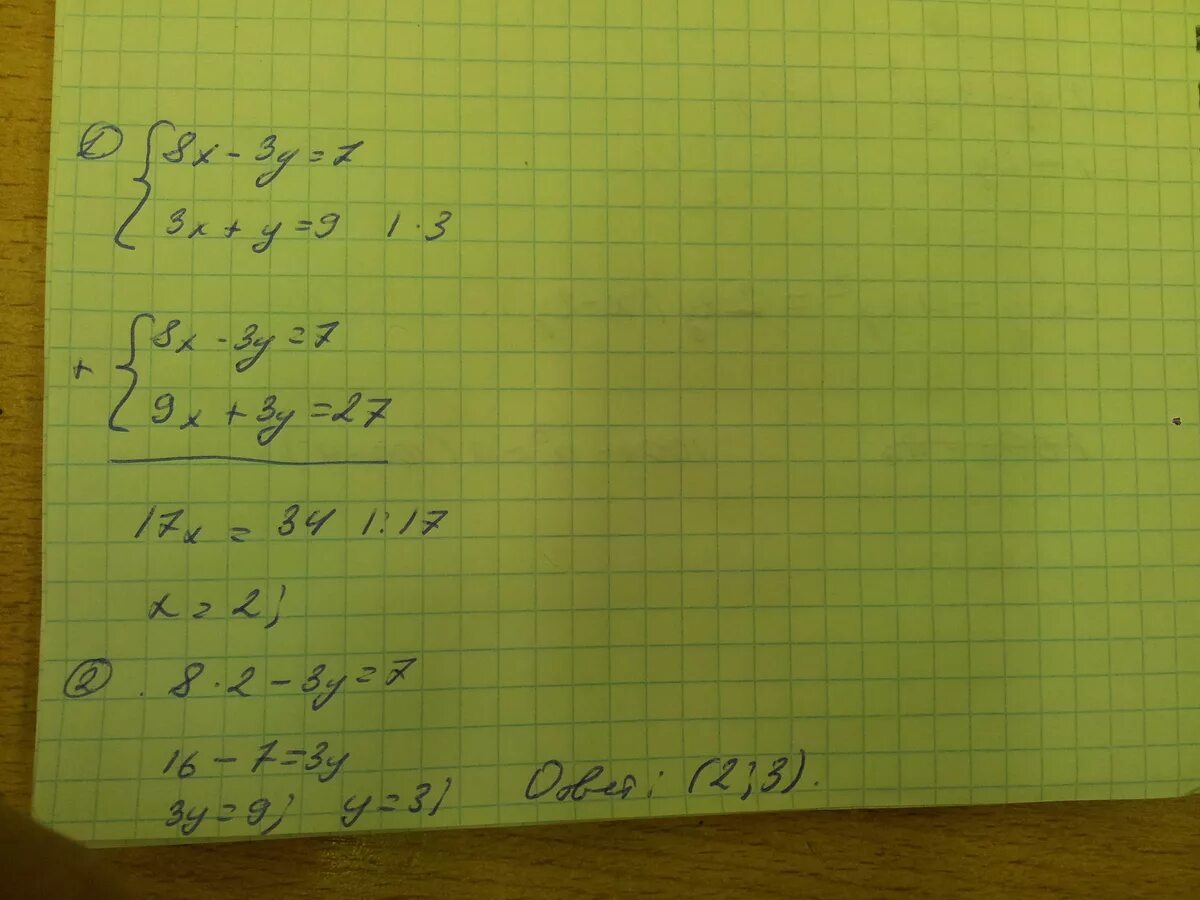 ① 8x - 3y = 7
3x + y = 9 | · 3
+ 8x - 3y = 7
9x + 3y = 27
17x = 34 | : 17
x = 2;
② . 8 · 2 - 3y = 7
16 - 7 = 3y
3y = 9; y = 3; Ответ: (2; 3).